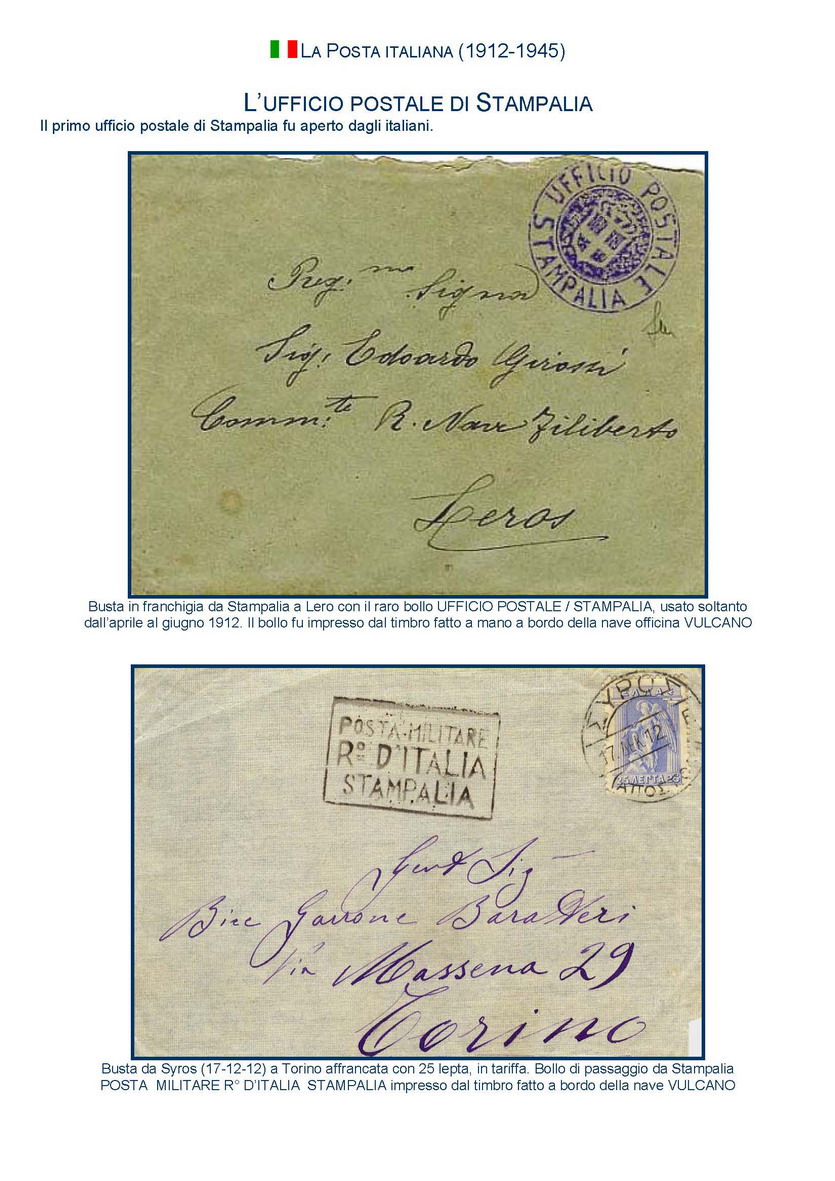 LA POSTA ITALIANA (1912-1945)
L'UFFICIO POSTALE DI STAMPALIA
Il primo ufficio postale di Stampalia fu aperto dagli italiani.
UFFICIO POSTALE
STAMPALIA
Preg.mo Signor
Sig. Edoardo Girossi
Comm.te R. Nave Filiberto
Leros
Busta in franchigia da Stampalia a Lero con il raro bollo UFFICIO POSTALE / STAMPALIA, usato soltanto
dall'aprile al giugno 1912. Il bollo fu impresso dal timbro fatto a mano a bordo della nave officina VULCANO
POSTA MILITARE
Rº D'ITALIA
STAMPALIA
ΣΥΡΟΣ
17 ΔΕΚ 12
25 ΛΕΠΤΑ 25
Gent Sig
Bice Garrone Baratteri
Via Massena 29
Torino
Busta da Syros (17-12-12) a Torino affrancata con 25 lepta, in tariffa. Bollo di passaggio da Stampalia
POSTA MILITARE R° D'ITALIA STAMPALIA impresso dal timbro fatto a bordo della nave VULCANO